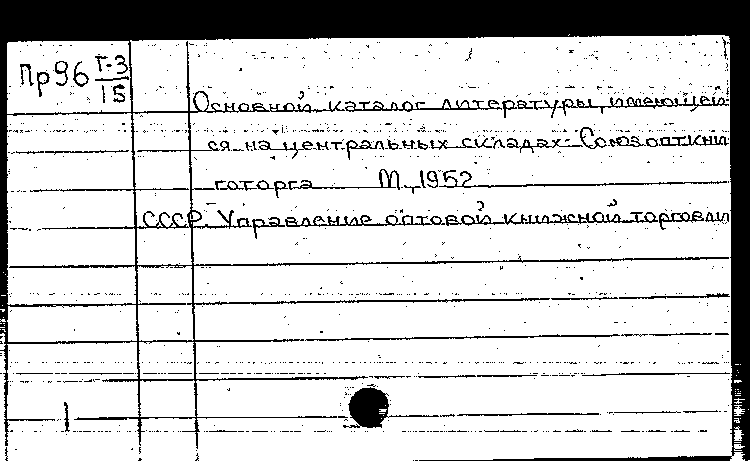 Пр96 Г-3/15
Основной каталог литературы, имеющей
ся на центральных складах Союзопткни
готорга М., 1952
СССР. Управление оптовой книжной торговли
1